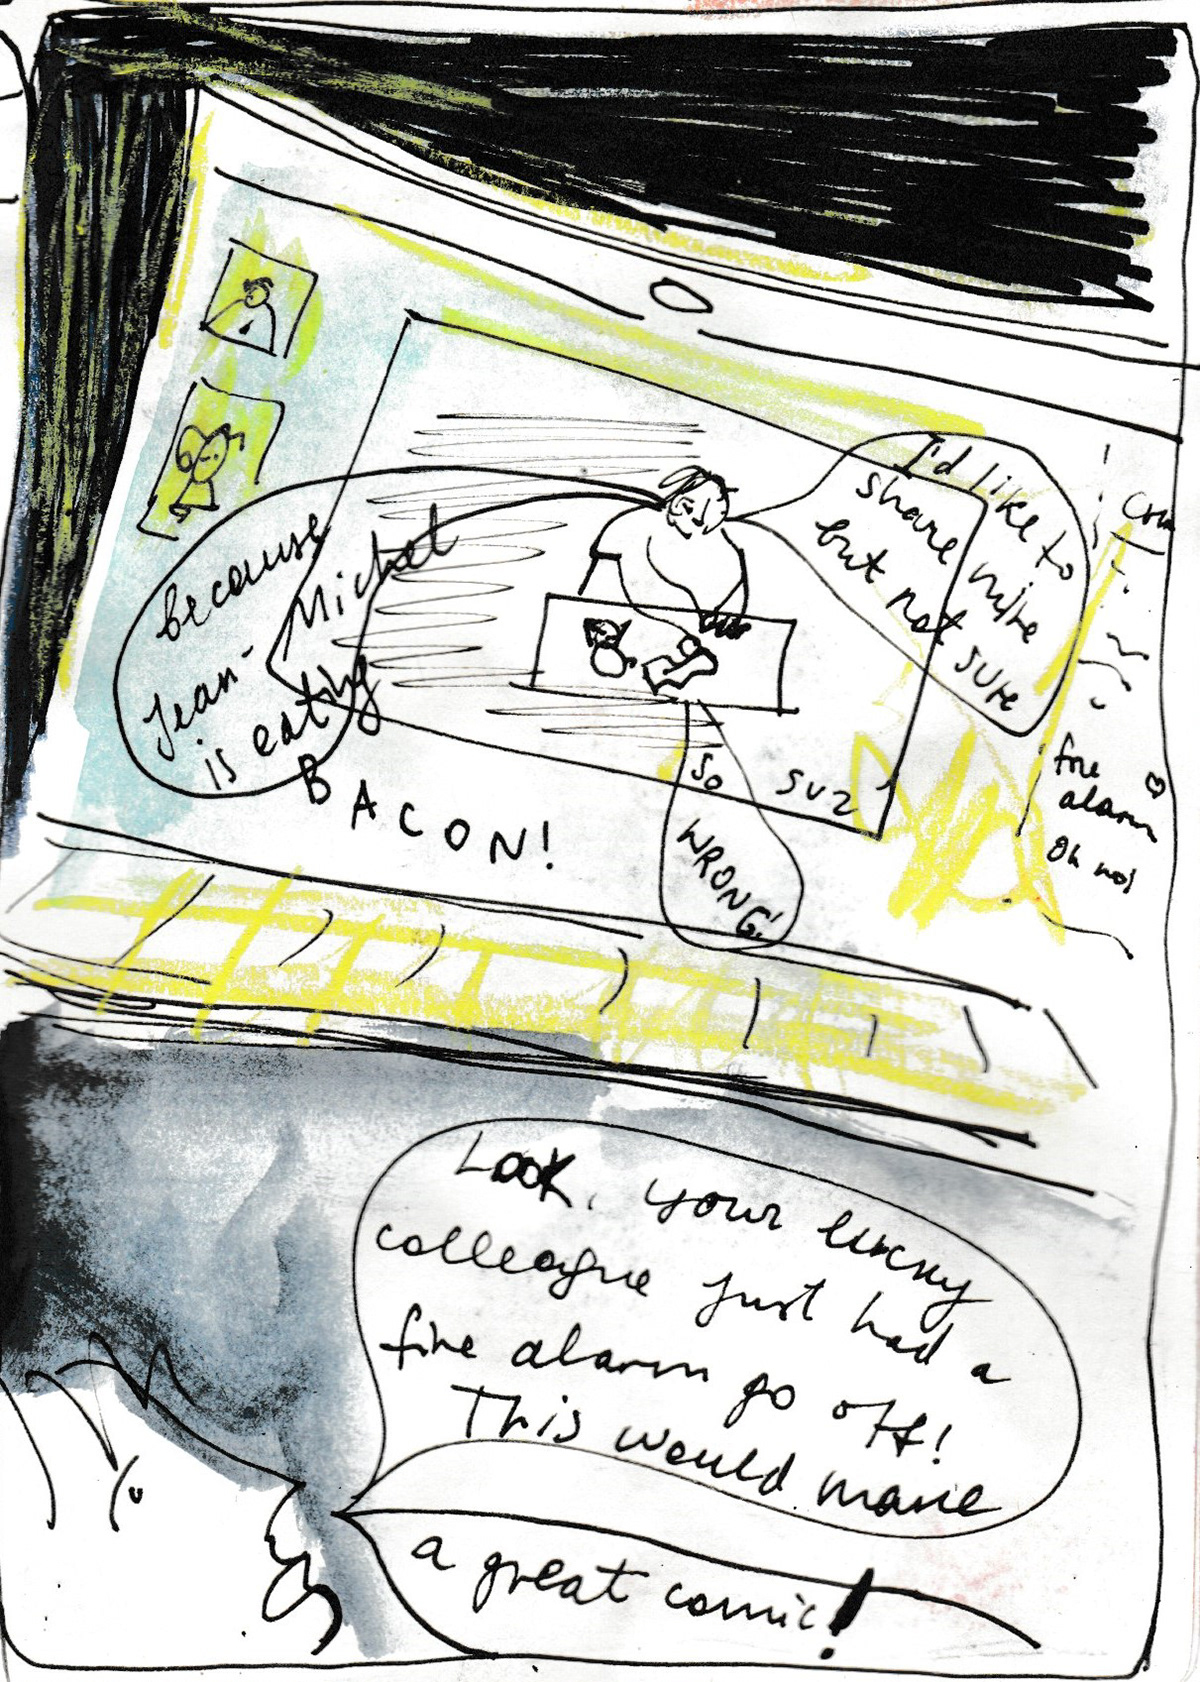 I'd like to
share mine
but not sure
because
Jean-
Michel
is eating
BACON!
So
WRONG!
SUZ
Com
fire
alarm
Oh no!
Look, your lucky
colleague just had a
fire alarm go off!
This would make
a great comic!